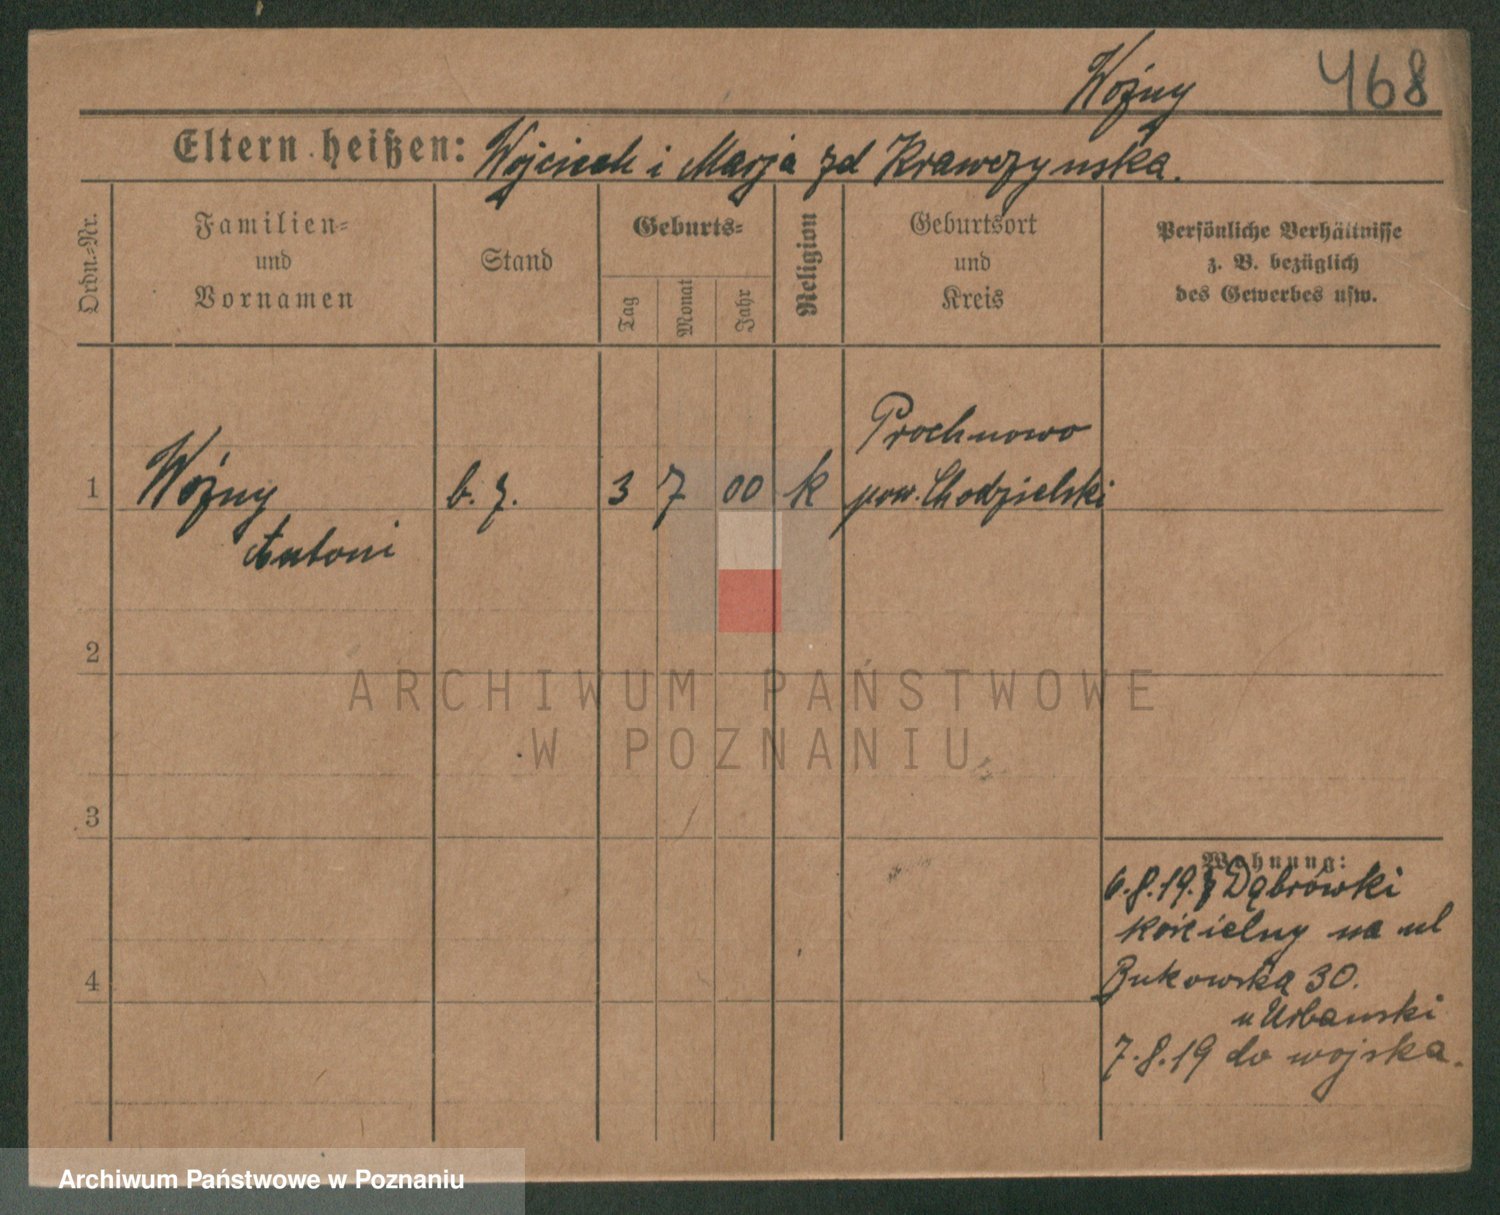 Wózny 468
Eltern heißen: Wojciech i Marja zd Krawczynska.
Ordn.-Nr.
Familien-
und
Vornamen
Stand
Geburts-
Tag
Monat
Jahr
Religion
Geburtsort
und
Kreis
Persönliche Verhältnisse
z. B. bezüglich
des Gewerbes usw.
Prochnowo
1 Wózny b. z. 3 7 00 k pow. Chodzielski
Antoni
2
ARCHIWUM PAŃSTWOWE
W POZNANIU
3
Wohnung:
6.8.19. z Dąbrówki
kościelny na ul
4 Bukowską 30.
u Urbanski
7.8.19 do wojska.
Archiwum Państwowe w Poznaniu